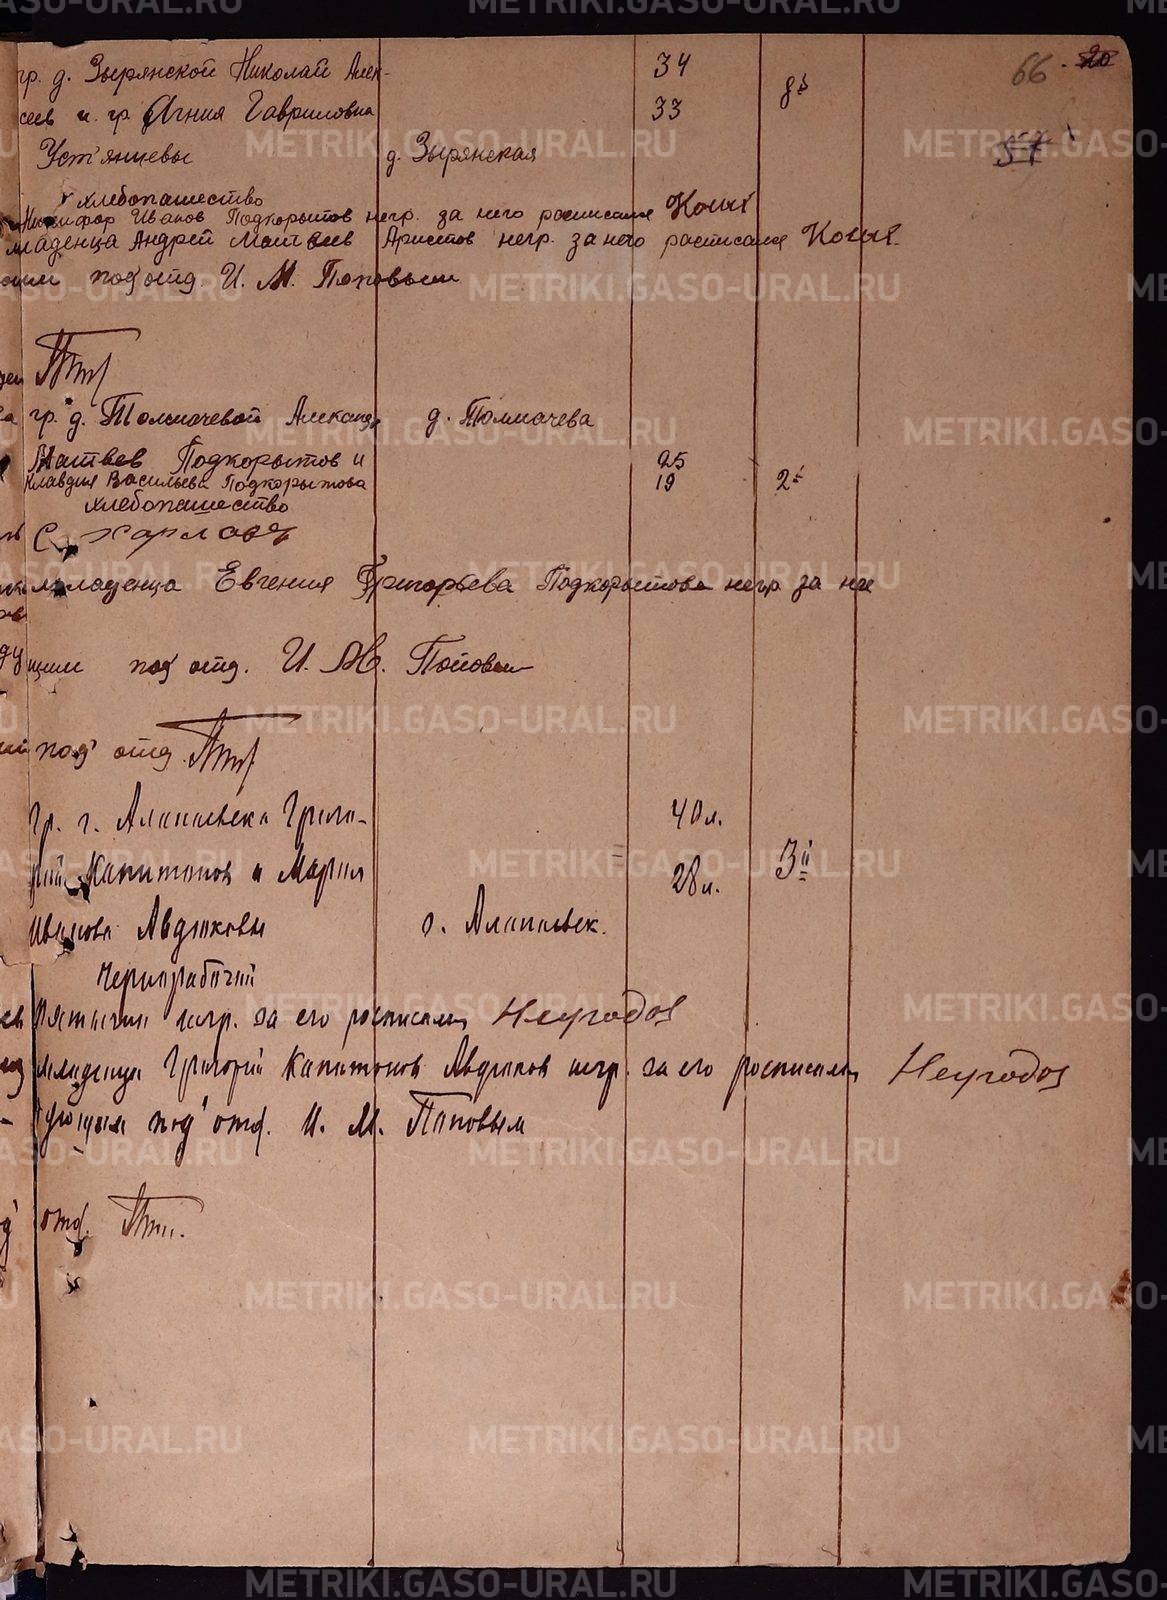 66 20
57
гр. д. Зырянской Николай Алек-
34
сеев и гр. Агния Гавриловна
33
8й
Устянцевы д. Зырянская
хлебопашество
Никифор Иванов Подкорытов негр. за него росписался
младенца Андрей Матвеев Аристов негр. за него расписался
под отд. И. М. Поповым
гр. д. Толмачевой Александр д. Толмачева
Матвеев Подкорытов и 25
Клавдия Васильева Подкорытова 19 2й
хлебопашество
младенца Евгения Григорьева Подкорытова негр. за нее
щим под отд. И. М. Поповым
под отд.
гр. г. Алапаевска Григо- 40 л.
рий Капитонов и Мария 28 л. 3й
Иванова Авдюковы г. Алапаевск.
Чернорабочий
негр. за его росписался Неугодов
младенца Григорий Капитонов Авдюков негр. за его росписался Неугодов
под отд. И. М. Поповым
отд.
METRIKI.GASO-URAL.RU